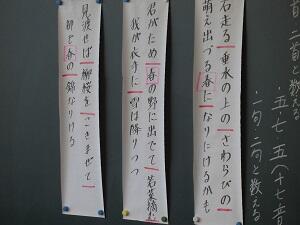 首、二首と数える
五・七・五(十七音
一句、二句と数える
石走る垂水の上のさわらびの
萌え出づる春になりにけるかも
君がため春の野に出でて若菜摘む
我が衣手に雪は降りつつ
見渡せば柳桜をこきまぜて
都ぞ春の錦なりける